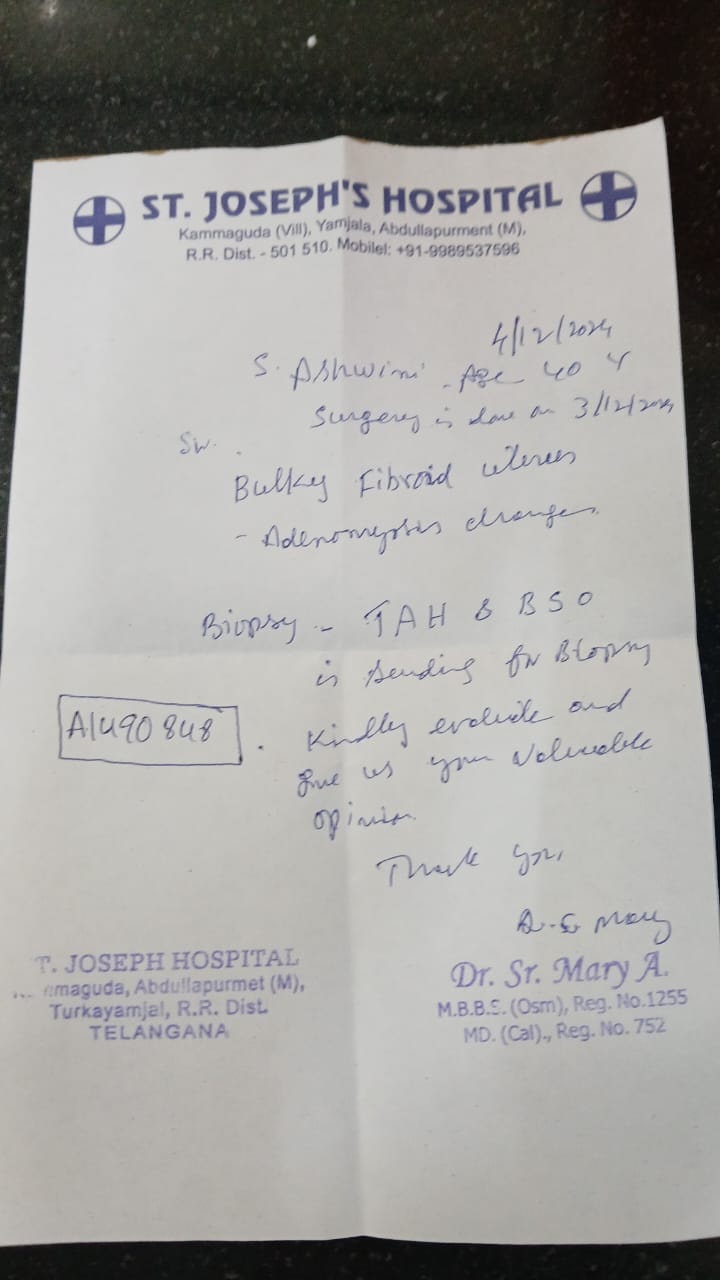 ST. JOSEPH'S HOSPITAL
Kammaguda (Vill), Yamjala, Abdullapurment (M),
R.R. Dist. - 501 510. Mobilel: +91-9989537596
4/12/2024
S. Ashwini - Age 40 Y
Surgery is done on 3/12/2024
Sir.
Bulky Fibroid uterus
- Adenomyosis changes.
Biopsy - TAH & BSO
is sending for Biopsy
A1490848
. Kindly evaluate and
give us your valuable
opinion
Thank you,
T. JOSEPH HOSPITAL
maguda, Abdullapurmet (M),
Turkayamjal, R.R. Dist.
TELANGANA
Dr. Sr. Mary A.
M.B.B.S. (Osm), Reg. No.1255
MD. (Cal)., Reg. No. 752